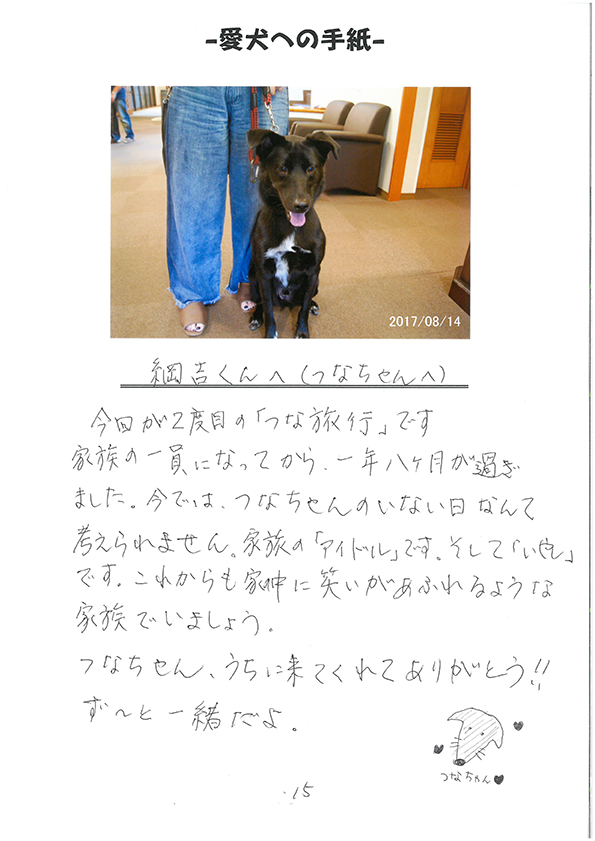 -愛犬への手紙-
2017/08/14
綱吉くんへ(つなちゃんへ)
今回が2度目の「つな旅行」です
家族の一員になってから、一年八ヶ月が過ぎ
ました。今では、つなちゃんのいない日なんて
考えられません。家族の「アイドル」です。そして「いやし」
です。これからも家中に笑いがあふれるような
家族でいましょう。
つなちゃん、うちに来てくれてありがとう!!
ず〜と一緒だよ。
つなちゃん
15